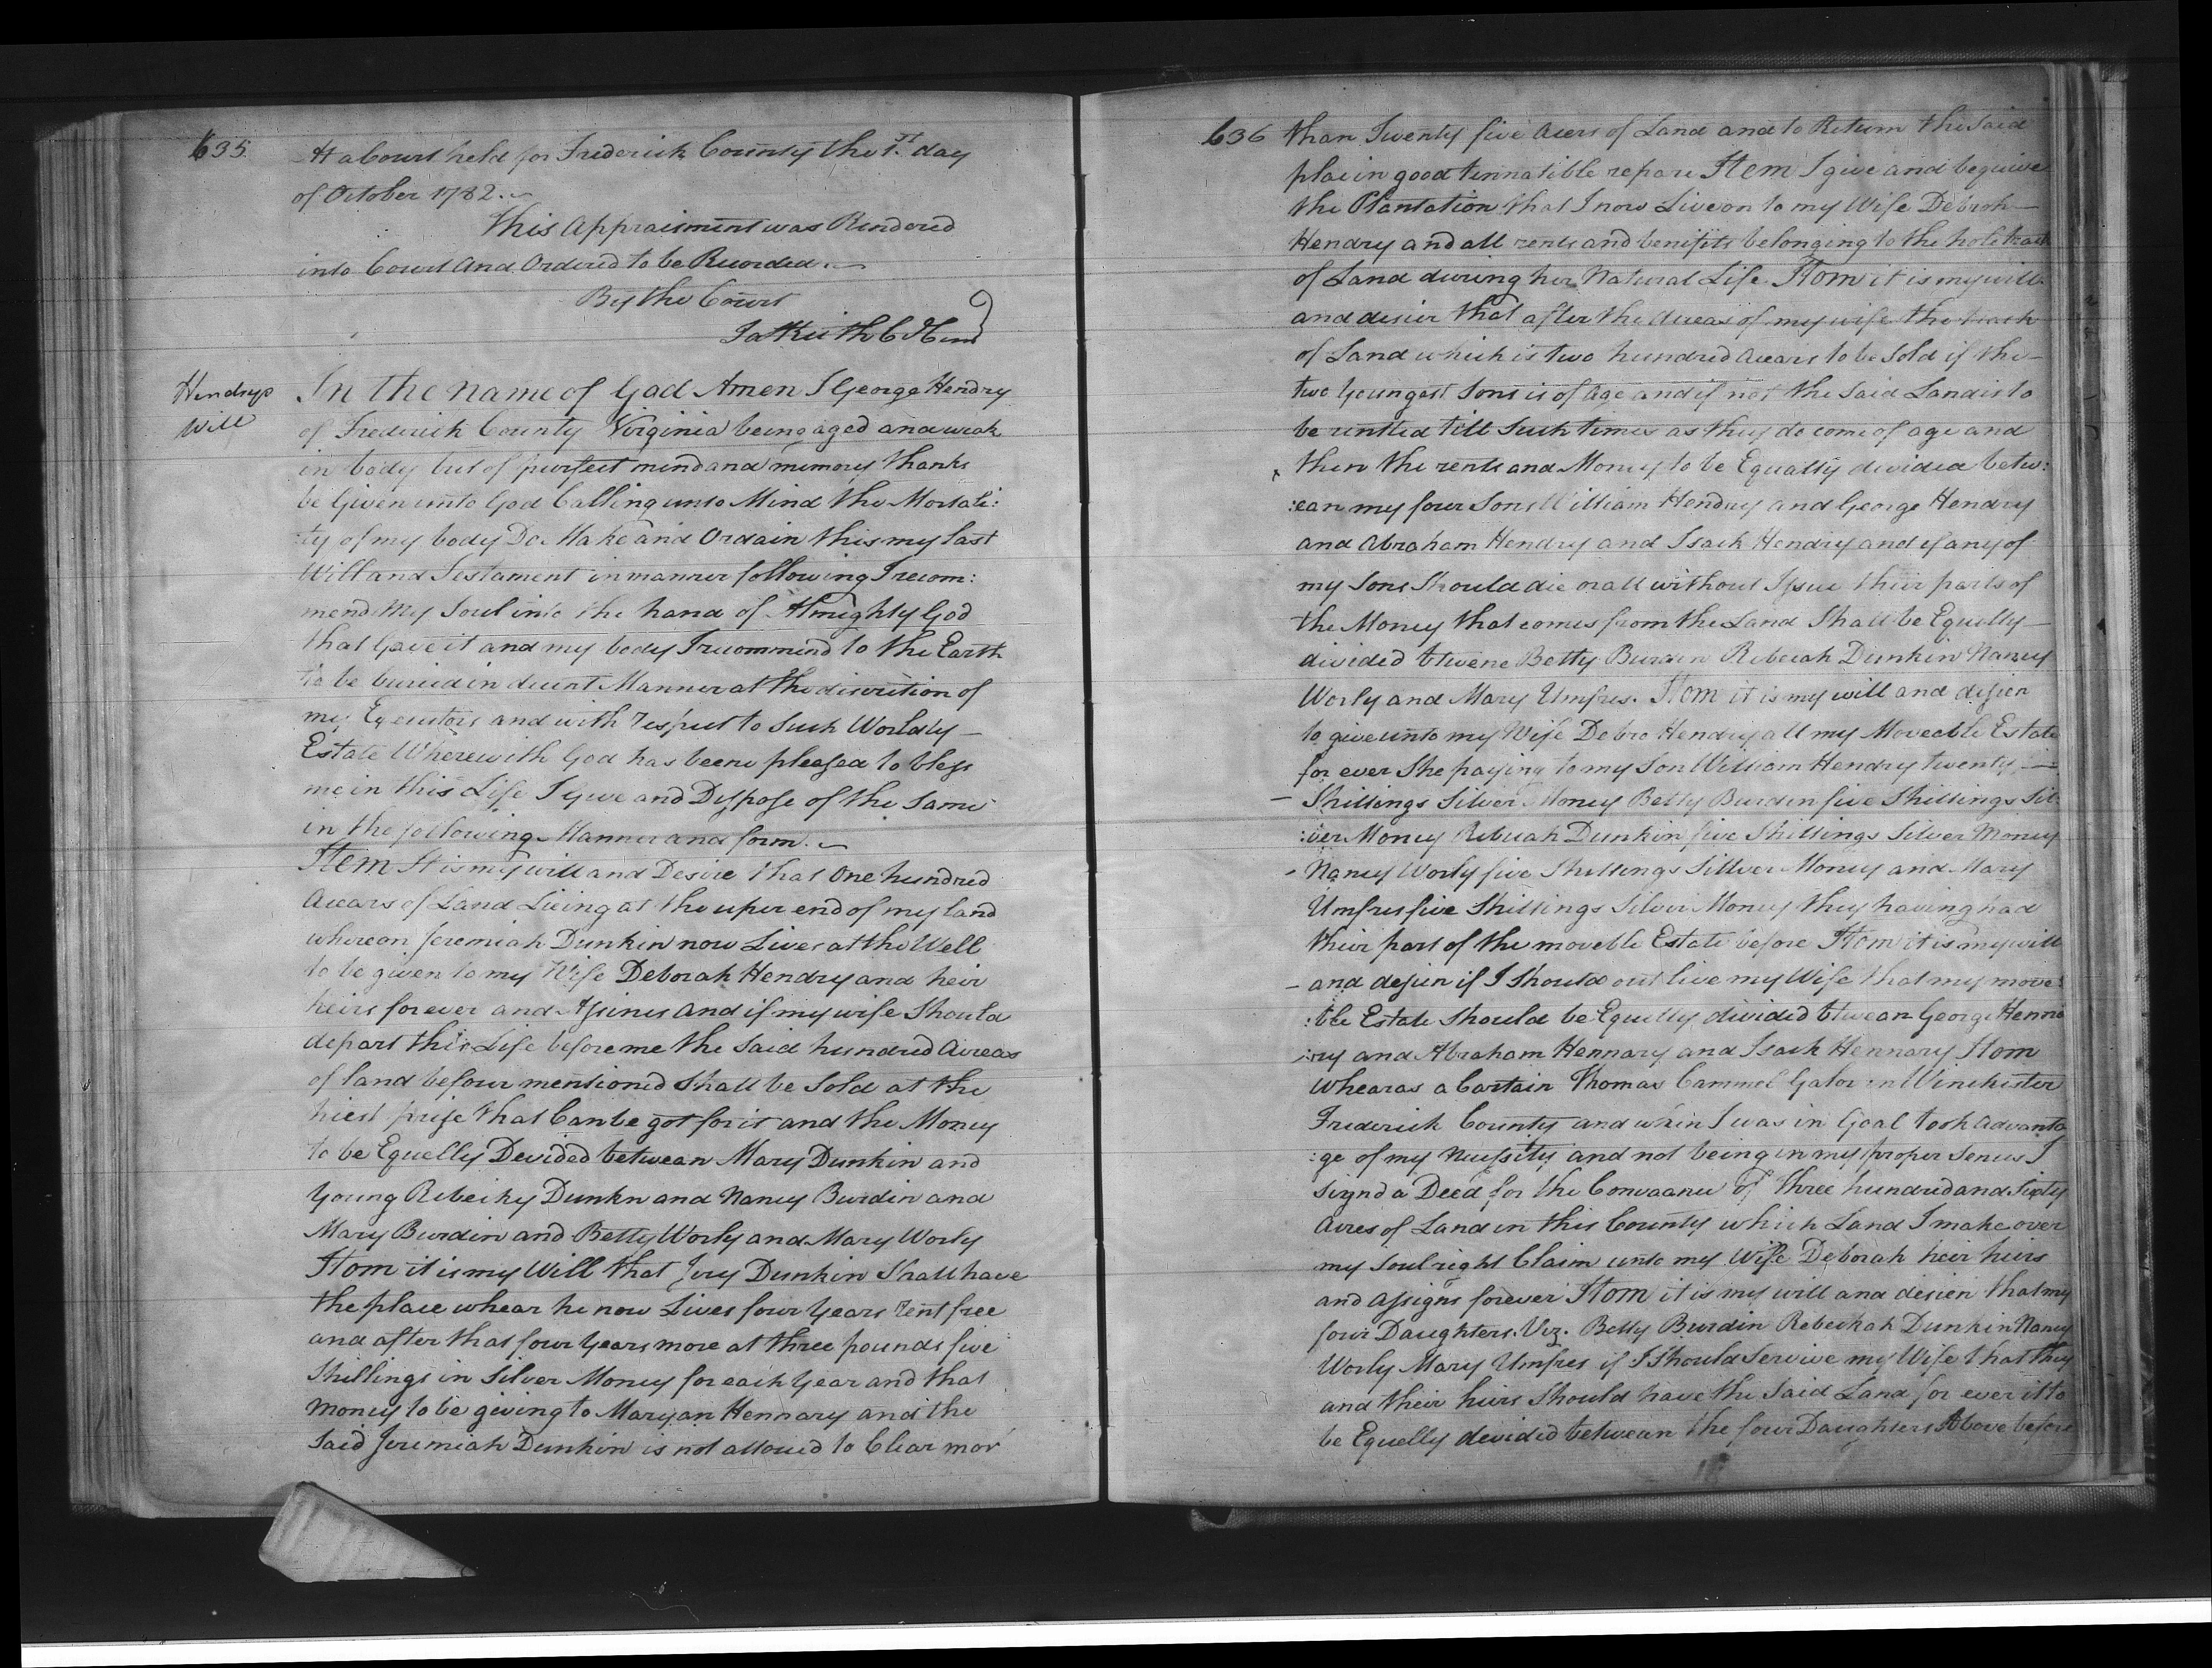 635
At a Court held for Frederick County the 1st. day
of October 1782.
This Appraisment was Rendered
into Court And Ordered to be Recorded.
By the Court
Ja Keith C
Hendrys
Will
In the name of God Amen I George Hendry
of Frederick County Virginia being aged and weak
in body but of purfect mind and memory thanks
be Given unto God Calling unto Mind the Mortali:
:ty of my body Do Make and Ordain this my last
Will and Testament in manner following I recom:
mend My Soul into the hand of Almighty God
that Gave it and my body I recommend to the Earth
to be buried in decent Manner at the discrition of
my Executors and with respect to Such Worldly
Estate Wherewith God has been pleased to bless
me in this Life I Give and Dispose of the Same
in the following Manner and form.
Item It is my will and Desire that One hundred
Accars of Land Liing at the uper end of my land
whereon Jeremiah Dunkin now Lives at the Well
to be given to my Wife Deborah Hendry and heir
heirs for ever and Assines and if my wife Should
depart this Life before me the Said hundred Acreas
of land befour mentioned Shall be Sold at the
hiest prise that Can be got for it and the Money
to be Equelly Devided betwean Mary Dunkin and
young Rebeiky Dunkn and Nancy Burdin and
Mary Burdin and Betty Worly and Mary Worly
Itom it is my Will that Jery Dunkin Shall have
the place whear he now Lives four years rent free
and after that four years more at three pounds five
Shillings in Silver Money for each year and that
money to be giving to Maryan Hennary and the
Said Jeremiah Dunkin is not alloued to Clear mor
636
than Twenty five Acers of Land and to Return the Said
plac in good tinnatible repare Item I give and bequive
the Plantation that I now Live on to my Wife Debroh
Hendry and all rents and benifits belonging to the hole track
of Land during her Natural Life. Itom it is my will
and desier that after the deceas of my wife the track
of Land which is two hundred Accars to be Sold if the
two youngest Sons is of age and if not the Said Land is to
be rentted till Such times as they do come of age and
then the rents and Money to be Equally divided betw:
:ean my four Sons William Hendry and George Hendry
and Abraham Hendry and Isack Hendry and if any of
my Sons Should die or all without Issue their parts of
the Money that comes from the Land Shall be Equelly
divided btwene Betty Burden Rebecah Dunkin Nancy
Worly and Mary Umfres. Itom it is my will and desien
to give unto my Wife Debro Hendry all my Moveable Estate
for ever She paying to my Son William Hendry twenty
Shillings Silver Money Betty Burden five Shillings Sil:
:ver Money Rebecah Dunkin five Shillings Silver Money
Nancy Worly five Shillings Sillver Money and Mary
Umfres five Shillings Silver Money they having had
their part of the moveble Estate before Itom it is my will
and desien if I Should out live my Wife that my move:
:ble Estate Should be Equelly divided btwean George Henna
:ry and Abraham Hennary and Isack Hennary Itom
Whearas a Cartain Thomas Cammel Galor in Winchester
Frederick County and when I was in Goal took advanta
:ge of my Necissity and not being in my proper Senses I
Signd a Deed for the Convaance of three hundred and Sixty
Acres of Land in this County which Land I make over
my Soul right Claim unto my Wife Deborah heir heirs
and assigns forever Itom it is my will and desien that my
four Daughters. Viz. Betty Burdin Rebeckah Dunkin Nancy
Worly Mary Umfres if I Should Servive my Wife that they
and their heirs Should have the Said Land for ever it to
be Equelly devided betwean the four Daughters Above before